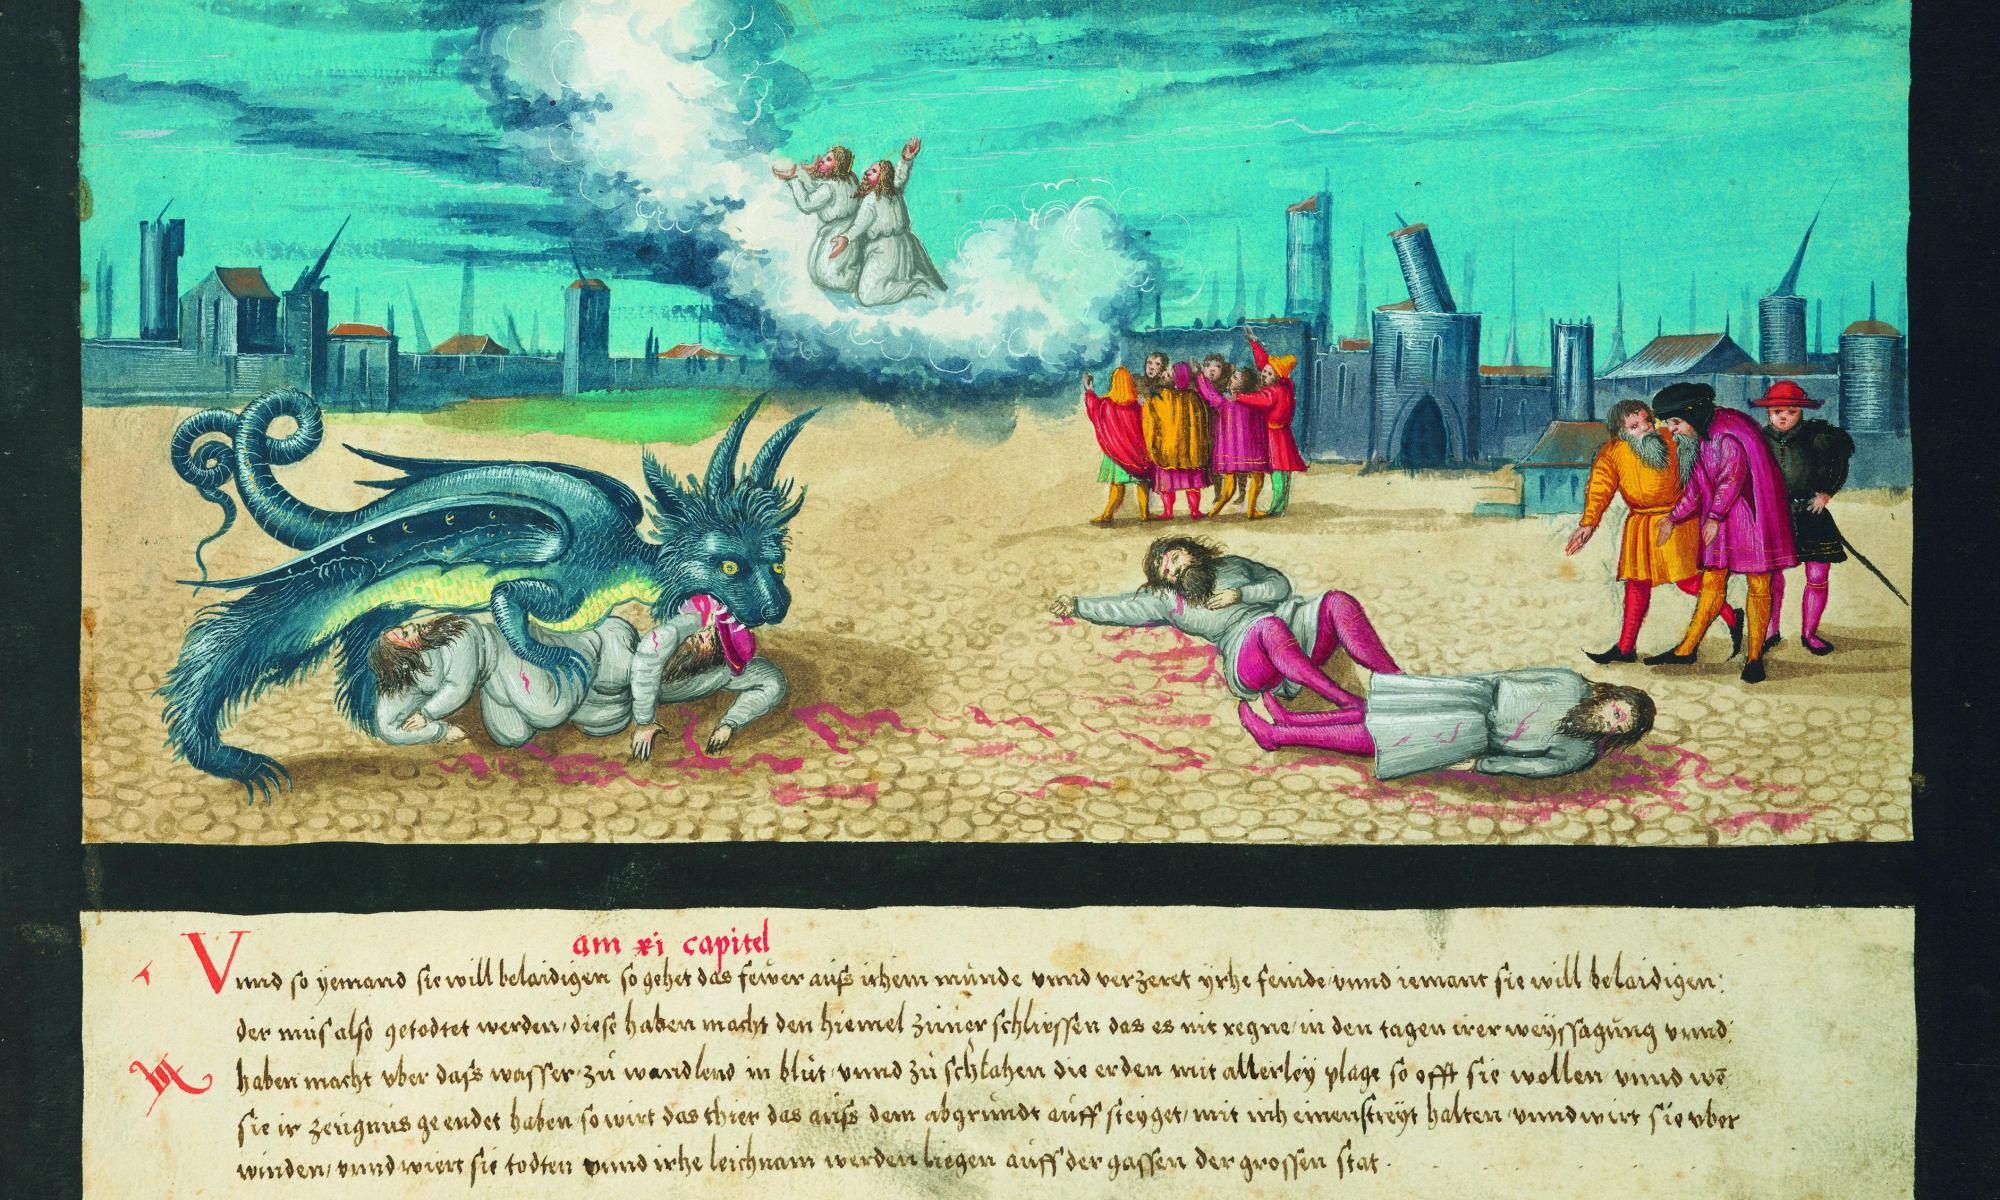 am xi capitel
Vnnd so yemand sie will belaidigen so gehet das fewer auss irhem munde vnnd verzeret yrhe feinde/vnnd iemant sie will belaidigen:
der mus also getodtet werden/diese haben macht den hiemel zuuerschliessen das es nit regne/in den tagen irer weyssagung vnnd:
haben macht vber dass wasser/zů wandlend in blůt/vnnd zů schlahen die erden mit allerley plage so offt sie wollen vnnd wē
sie ir zeugnus geendet haben so wirt das thier das auss dem abgrundt auff steyget/mit inh einen streyt halten/vnnd wirt sie vber
winden/vnnd wiert sie todten vnnd irhe leichnam werden liegen auff der gassen der grossen stat.